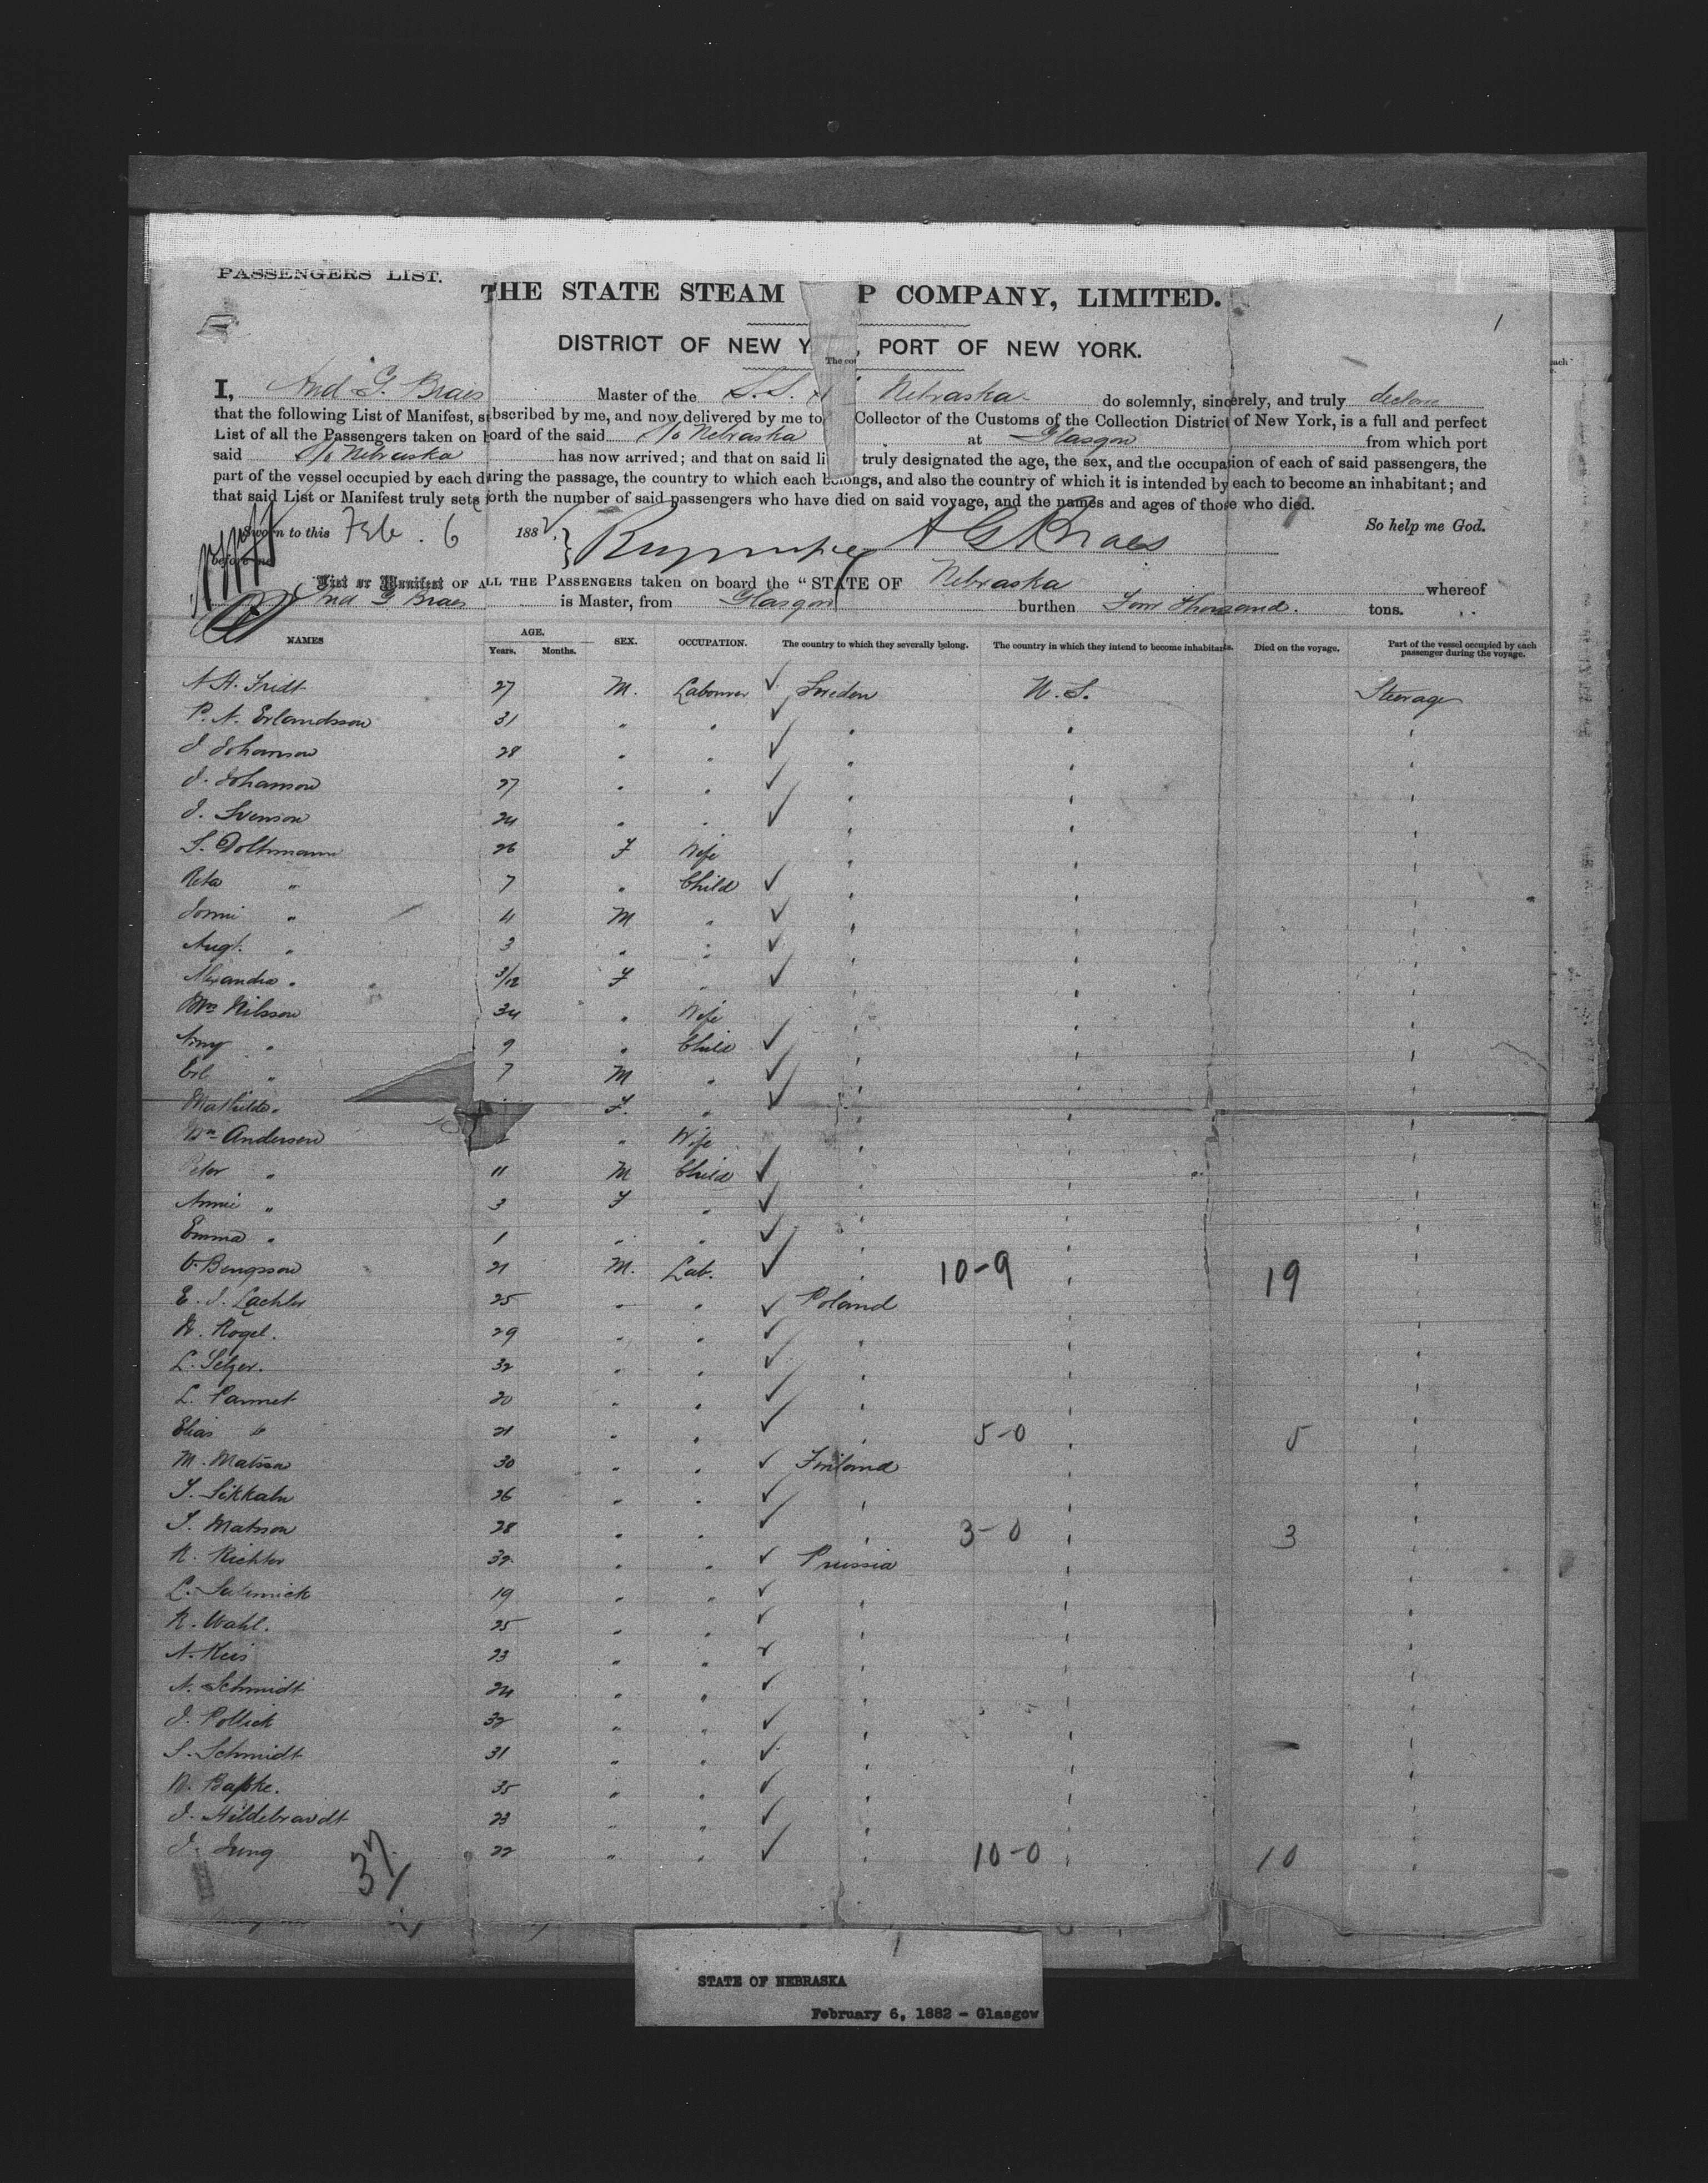 PASSENGERS LIST.
THE STATE STEAM P COMPANY, LIMITED.
1
DISTRICT OF NEW Y , PORT OF NEW YORK.
I, And G. Braes Master of the S.S. Nebraska do solemnly, sincerely, and truly declare
that the following List of Manifest, subscribed by me, and now delivered by me to Collector of the Customs of the Collection District of New York, is a full and perfect
List of all the Passengers taken on board of the said S/s Nebraska at Glasgow from which port
said S/s Nebraska has now arrived; and that on said li truly designated the age, the sex, and the occupation of each of said passengers, the
part of the vessel occupied by each during the passage, the country to which each belongs, and also the country of which it is intended by each to become an inhabitant; and
that said List or Manifest truly sets forth the number of said passengers who have died on said voyage, and the names and ages of those who died.
Sworn to this Feb. 6 1882. } A G Braes So help me God.
before me
List or Manifest OF ALL THE PASSENGERS taken on board the "STATE OF Nebraska whereof
And G Braes is Master, from Glasgow burthen Four thousand. tons.
NAMES AGE. Years. Months. SEX. OCCUPATION. The country to which they severally belong. The country in which they intend to become inhabitants. Died on the voyage. Part of the vessel occupied by each passenger during the voyage.
27 M. Labourer ✓ Sweden U.S. Steerage
P. N. Erlandsson 31 " " ✓ " " "
J Johanson 28 " " ✓ " " "
J. Johanson 27 " " ✓ " " "
J. Svenson 24 " " ✓ " " "
S. Dolhmann 26 F Wife " " "
" 7 " Child ✓ " " "
" 4 M " ✓ " " "
Augt. " 3 " " ✓ " " "
Alexandra " 3/12 F " ✓ " " "
Mrs Nilsson 34 " Wife " " "
" 9 " Child ✓ " " "
" 7 M " ✓ " " "
Mathilda " F. " ✓ " " "
Anderson " Wife " " "
Peter " 11 M Child ✓ " " "
Annie " 3 F " ✓ " " "
Emma " 1 " " ✓ " " "
Bengsson 21 M. Lab. ✓ " 10-9 " 19 "
E. J. Lachler 25 " " ✓ Poland " "
Rogel. 29 " " ✓ " " "
L. Selzer. 32 " " ✓ " " "
L. Parmet 20 " " ✓ " " "
Elias " 21 " " ✓ " 5-0 " 5 "
M. Matsson 30 " " ✓ Finland " "
26 " " ✓ " " "
Matsson 28 " " ✓ " 3-0 " 3 "
R. Richter 32 " " ✓ Prussia " "
19 " " ✓ " " "
R. Wahl. 25 " " ✓ " " "
23 " " ✓ " " "
A. Schmidt 24 " " ✓ " " "
J. Pollick 32 " " ✓ " " "
S. Schmidt 31 " " ✓ " " "
35 " " ✓ " " "
J. Hildebrandt 23 " " ✓ " " "
J. Jung 22 " " ✓ " 10-0 " 10 "
37
STATE OF NEBRASKA
February 6, 1882 - Glasgow